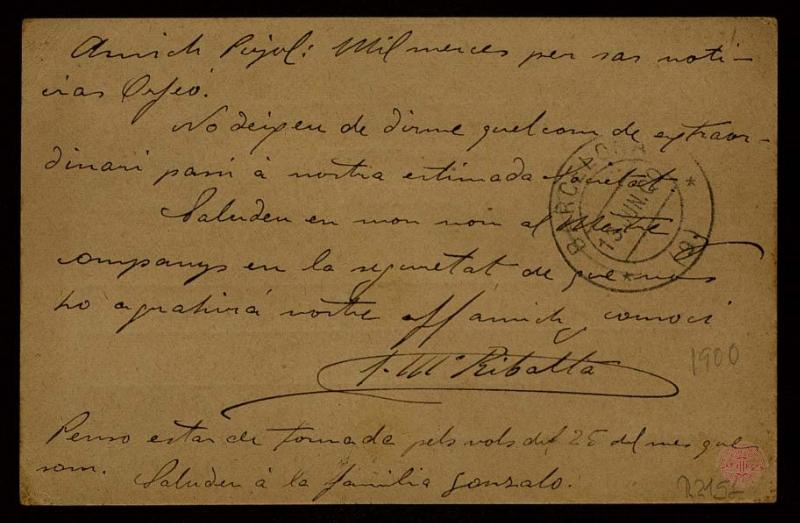 Amich Pujol: Mil merces per sas noti-
cias Orfeó.
No deixeu de dirme quelcom de extraor-
dinari passi á nostra estimada Societat.
Saludeu en mon nom al Mestre y
companys en la seguretat de que
ho agrahirá vostre aff amich y consoci
J. Mª Ribalta
Penso estar de tornada pels vols del 25 del mes que
som. Saludeu á la familia Gonzalo.
BARCELONA
13 JUN. 00
1900